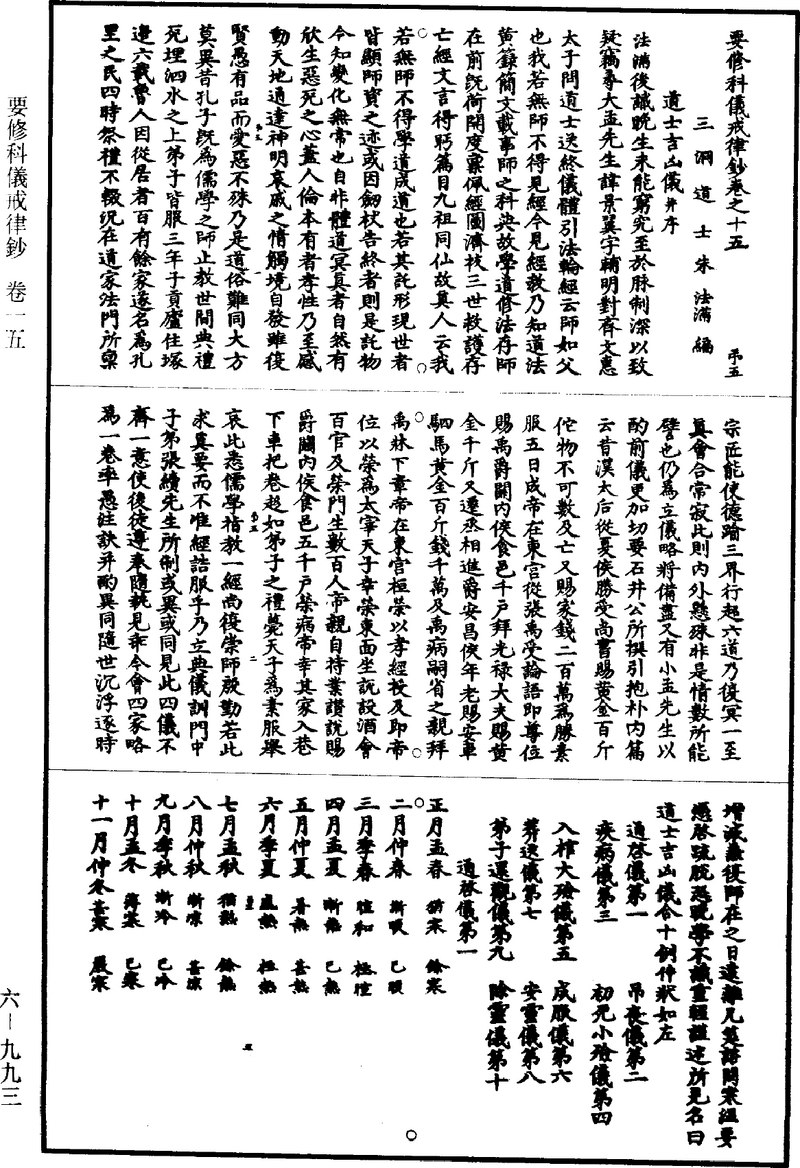 要修科儀戒律鈔卷之十五
弔五
三洞道士朱法滿編
道士吉凶儀并序
法滿後識晚生未能窮究至於脉制深以致
疑竊尋大孟先生諱景翼字輔明對齊文惠
太子問道士送終儀體引法輪經云師如父
也我若無師不得見經今見經教乃知道法
黃籙簡文載事師之科決故學道修法存師
在前既荷開度稟佩經圖濟拔三世救護存
亡經文言得眄篇目九祖同仙故真人云我
若無師不得學道成道也若其託形現世者
皆顯師資之迹或因劒杖告終者則是託物
令知變化無常也自非體道冥真者自然有
欣生惡死之心蓋人倫本有者孝性乃至感
動天地通達神明哀戚之情觸境自發雖復
賢愚有品而愛惡不殊乃是道俗難同大方
莫異昔孔子既為儒學之師止教世間典禮
死埋泗水之上弟子皆服三年子貢廬住塚
邊六載魯人因從居者百有餘家遂名為孔
里之民四時祭禮不輟況在道家法門所稟
宗匠能使德踰三界行起六道乃復冥一至
真會合常寂此則內外懸殊非是情數所能
譬也仍為立儀略將備盡又有小孟先生以
酌前儀更加切要石井公所撰引抱朴內篇
云昔漢太后從夏侯勝受尚書賜黃金百斤
佗物不可數及亡又賜家錢二百萬為勝素
服五日成帝在東宮從張禹受論語即尊位
賜禹爵關內侯食邑千戶拜光祿大夫賜黃
金千斤又遷丞相進爵安昌侯年老賜安車
駟馬黃金百斤錢千萬及禹病嗣省之親拜
禹牀下章帝在東宮桓榮以孝經授及即帝
位以榮為太宰天子幸榮東面坐說設酒會
百官及榮門生數百人帝親自持業讚說賜
爵關內侯食邑五千戶榮病帝幸其家入巷
下車把卷趍如弟子之禮薨天子為素服舉
哀此悉儒學指教一經尚復崇師啟勤若此
求真要而不唯經誥服乎乃立典儀訓門中
子弟張續先生所制或異或同見此四儀不
齊一意使後徒遵奉隨執見乖今會四家略
為一卷率愚注訣并酌異同隨世沉浮逐時
增減兼復師在之日遠離凡筵諮問案經要
懸啓疏脫恐晚學不識重輕謹述所見名曰
道士吉凶儀合十創件狀如左
通啓儀第一 弔喪儀第二
疾病儀第三 初死小殮儀第四
入棺大殮儀第五 成服儀第六
葬送儀第七 安靈儀第八
弟子還觀儀第九 除靈儀第十
通啓儀第一
正月孟春 猶寒 餘寒
二月仲春 漸暖 已暖
三月季春 暄和 極暄
四月孟夏 漸熱 已熱
五月仲夏 暑熱 甚熱
六月季夏 盛熱 極熱
七月孟秋 猶熱 餘熱
八月仲秋 漸涼 甚涼
九月季秋 漸冷 已冷
十月孟冬 薄寒 已寒
十一月仲冬 甚寒 嚴寒
要修科儀戒律鈔 卷一五
六—九九三